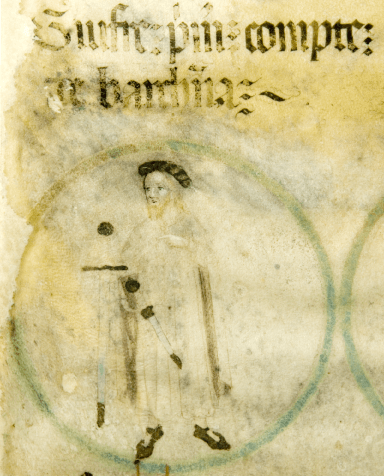 Guifre: compte:
de barchña:~